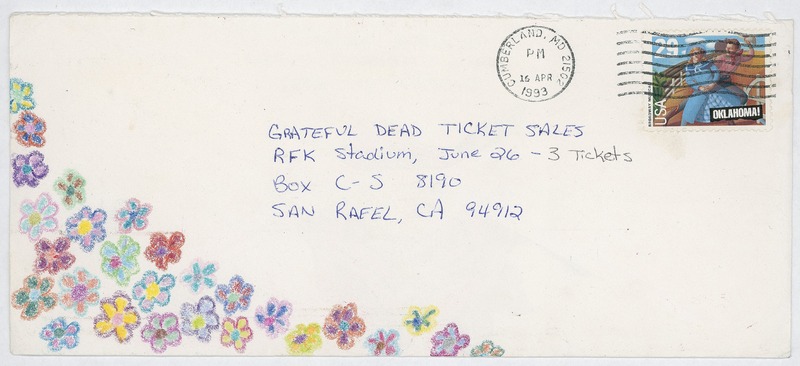 CUMBERLAND, MD 21502
PM
16 APR
1993
29
USA
OKLAHOMA!
GRATEFUL DEAD TICKET SALES
RFK Stadium, June 26 - 3 Tickets
Box C-S 8190
SAN RAFEL, CA 94912